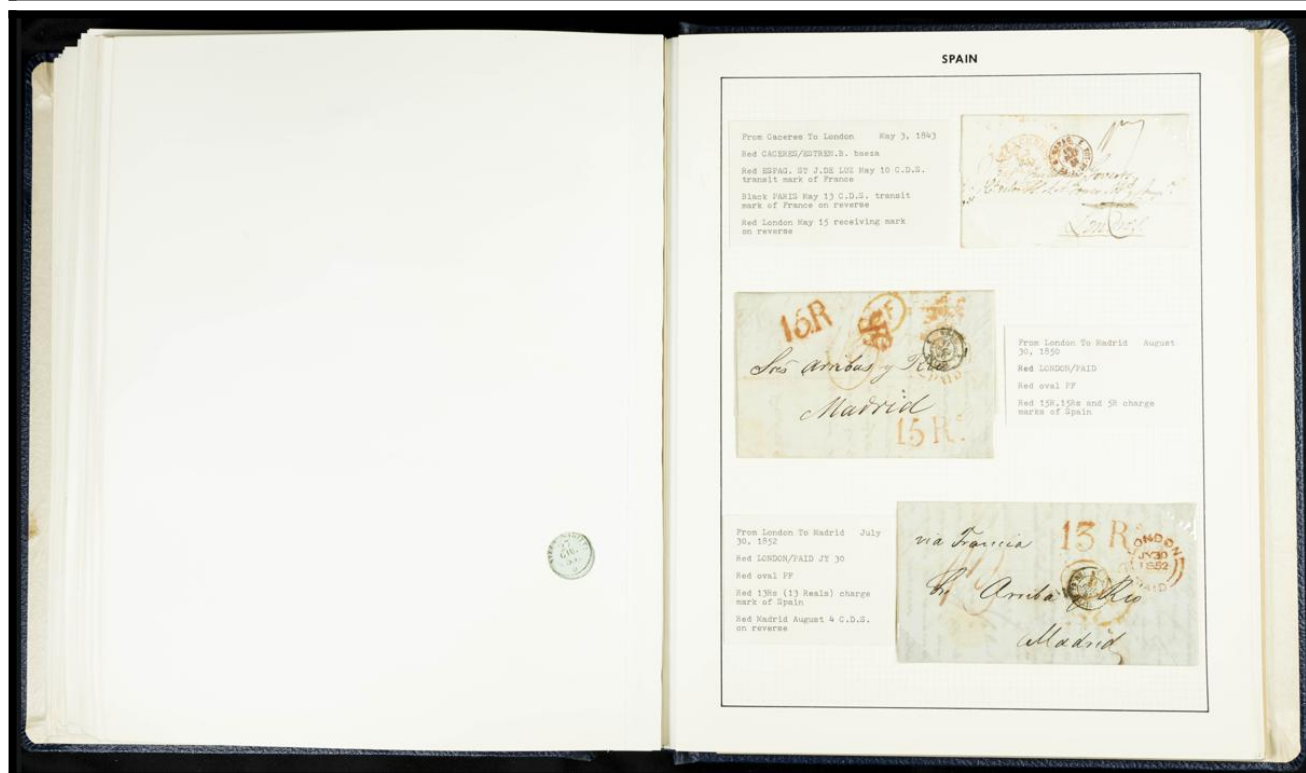 SPAIN
From Caceres To London May 3, 1843
Red CACERES/ESTREM.B. baeza
Red ESPAG. ST J.DE LUZ May 10 C.D.S.
transit mark of France
Black PARIS May 13 C.D.S. transit
mark of France on reverse
Red London May 15 receiving mark
on reverse
London
15R
5R
PF
Srés Arribas y Rio
Madrid
15 Rs.
From London To Madrid August
30, 1850
Red LONDON/PAID
Red oval PF
Red 15R,15Rs and 5R charge
marks of Spain
From London To Madrid July
30, 1852
Red LONDON/PAID JY 30
Red oval PF
Red 13Rs (13 Reals) charge
mark of Spain
Red Madrid August 4 C.D.S.
on reverse
via Francia
13 Rs
LONDON
JY30
1852
PAID
Arriba y Rio
Madrid